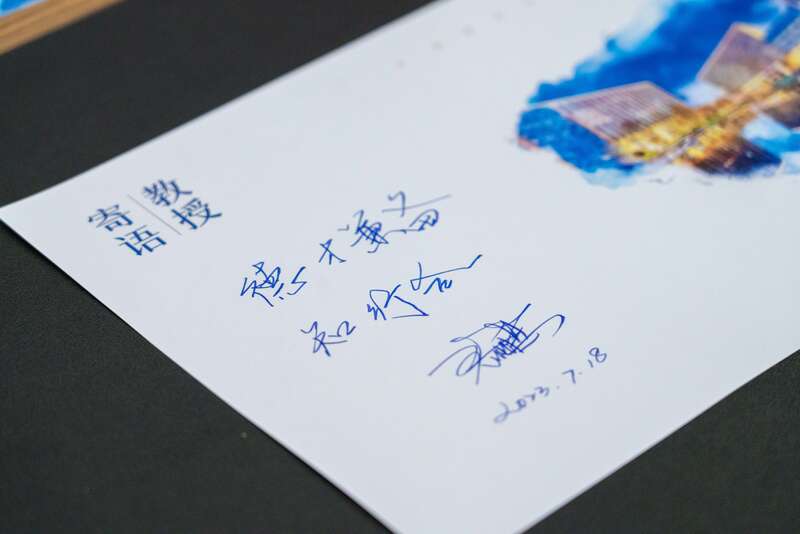 教授
寄语
德才兼备
知行合一
2023.7.18